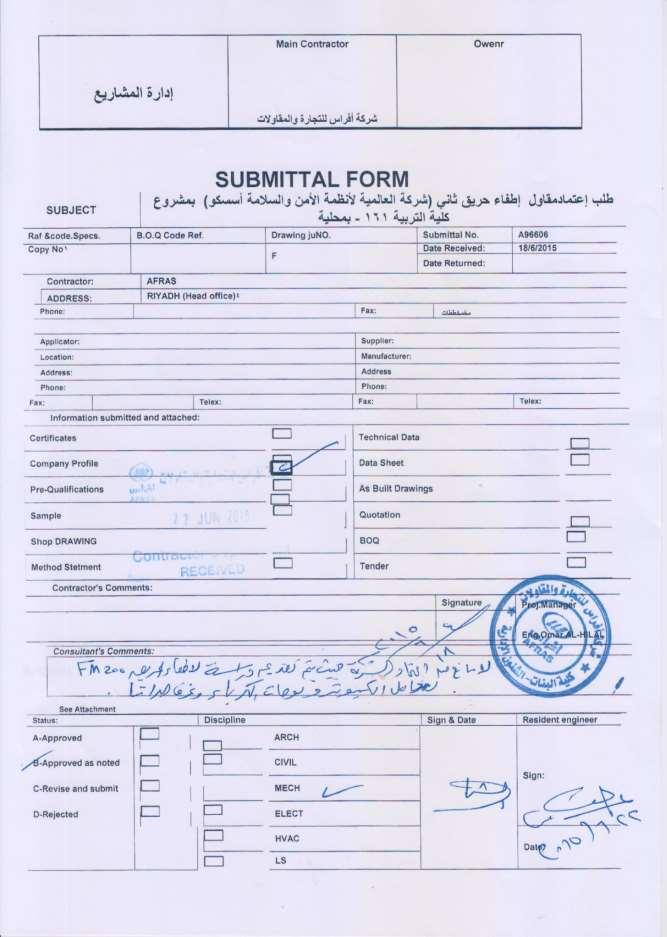 إدارة المشاريع
Main Contractor
شركة أفراس للتجارة والمقاولات
Owenr
SUBMITTAL FORM
SUBJECT
طلب إعتمادمقاول إطفاء حريق ثاني (شركة العالمية لأنظمة الأمن والسلامة أسسكو) بمشروع
كلية التربية ١٦١ - بمحلية
Raf &code.Specs. B.O.Q Code Ref. Drawing juNO. Submittal No. A96606
Copy No١ F Date Received: 18/6/2015
Date Returned:
Contractor: AFRAS
ADDRESS: RIYADH (Head office)
Phone: Fax: مخططات
Applicator: Supplier:
Location: Manufacturer:
Address: Address
Phone: Phone:
Fax: Telex: Fax: Telex:
Information submitted and attached:
Certificates Technical Data
Company Profile Data Sheet
Pre-Qualifications As Built Drawings
Sample Quotation
Shop DRAWING BOQ
Method Stetment Tender
22 JUN 2015
RECEIVED
Contractor's Comments:
Signature Proj.Manager
Eng.Omar AL-HILAL
شركة أفراس للتجارة والمقاولات
AFRAS
Consultant's Comments:
لا مانع من اعتماد الشركة حيث يتم تقديم دراسة لإطفاء الحريق FM200
See Attachment
Status: Discipline Sign & Date Resident engineer
A-Approved ARCH
B-Approved as noted CIVIL
C-Revise and submit MECH
D-Rejected ELECT
HVAC
LS
Sign:
Date